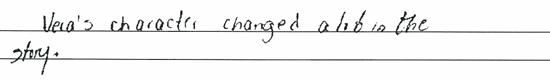 Vera's character changed alot in the
story.